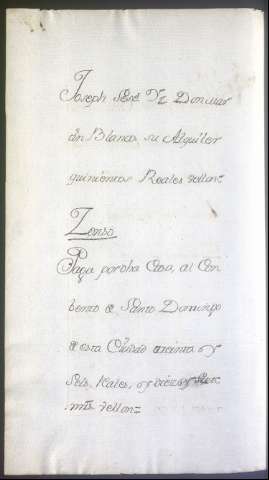 Joseph Sere Dz Donmar
tin Blanco, su Alquiler
quinientos Reales vellon=
Zenso
Paga por dha Casa, al Con
bento de Santo Domingo
de esta Ciudad treinta y
seis, Rales, y diez y siete
mrs. vellon=